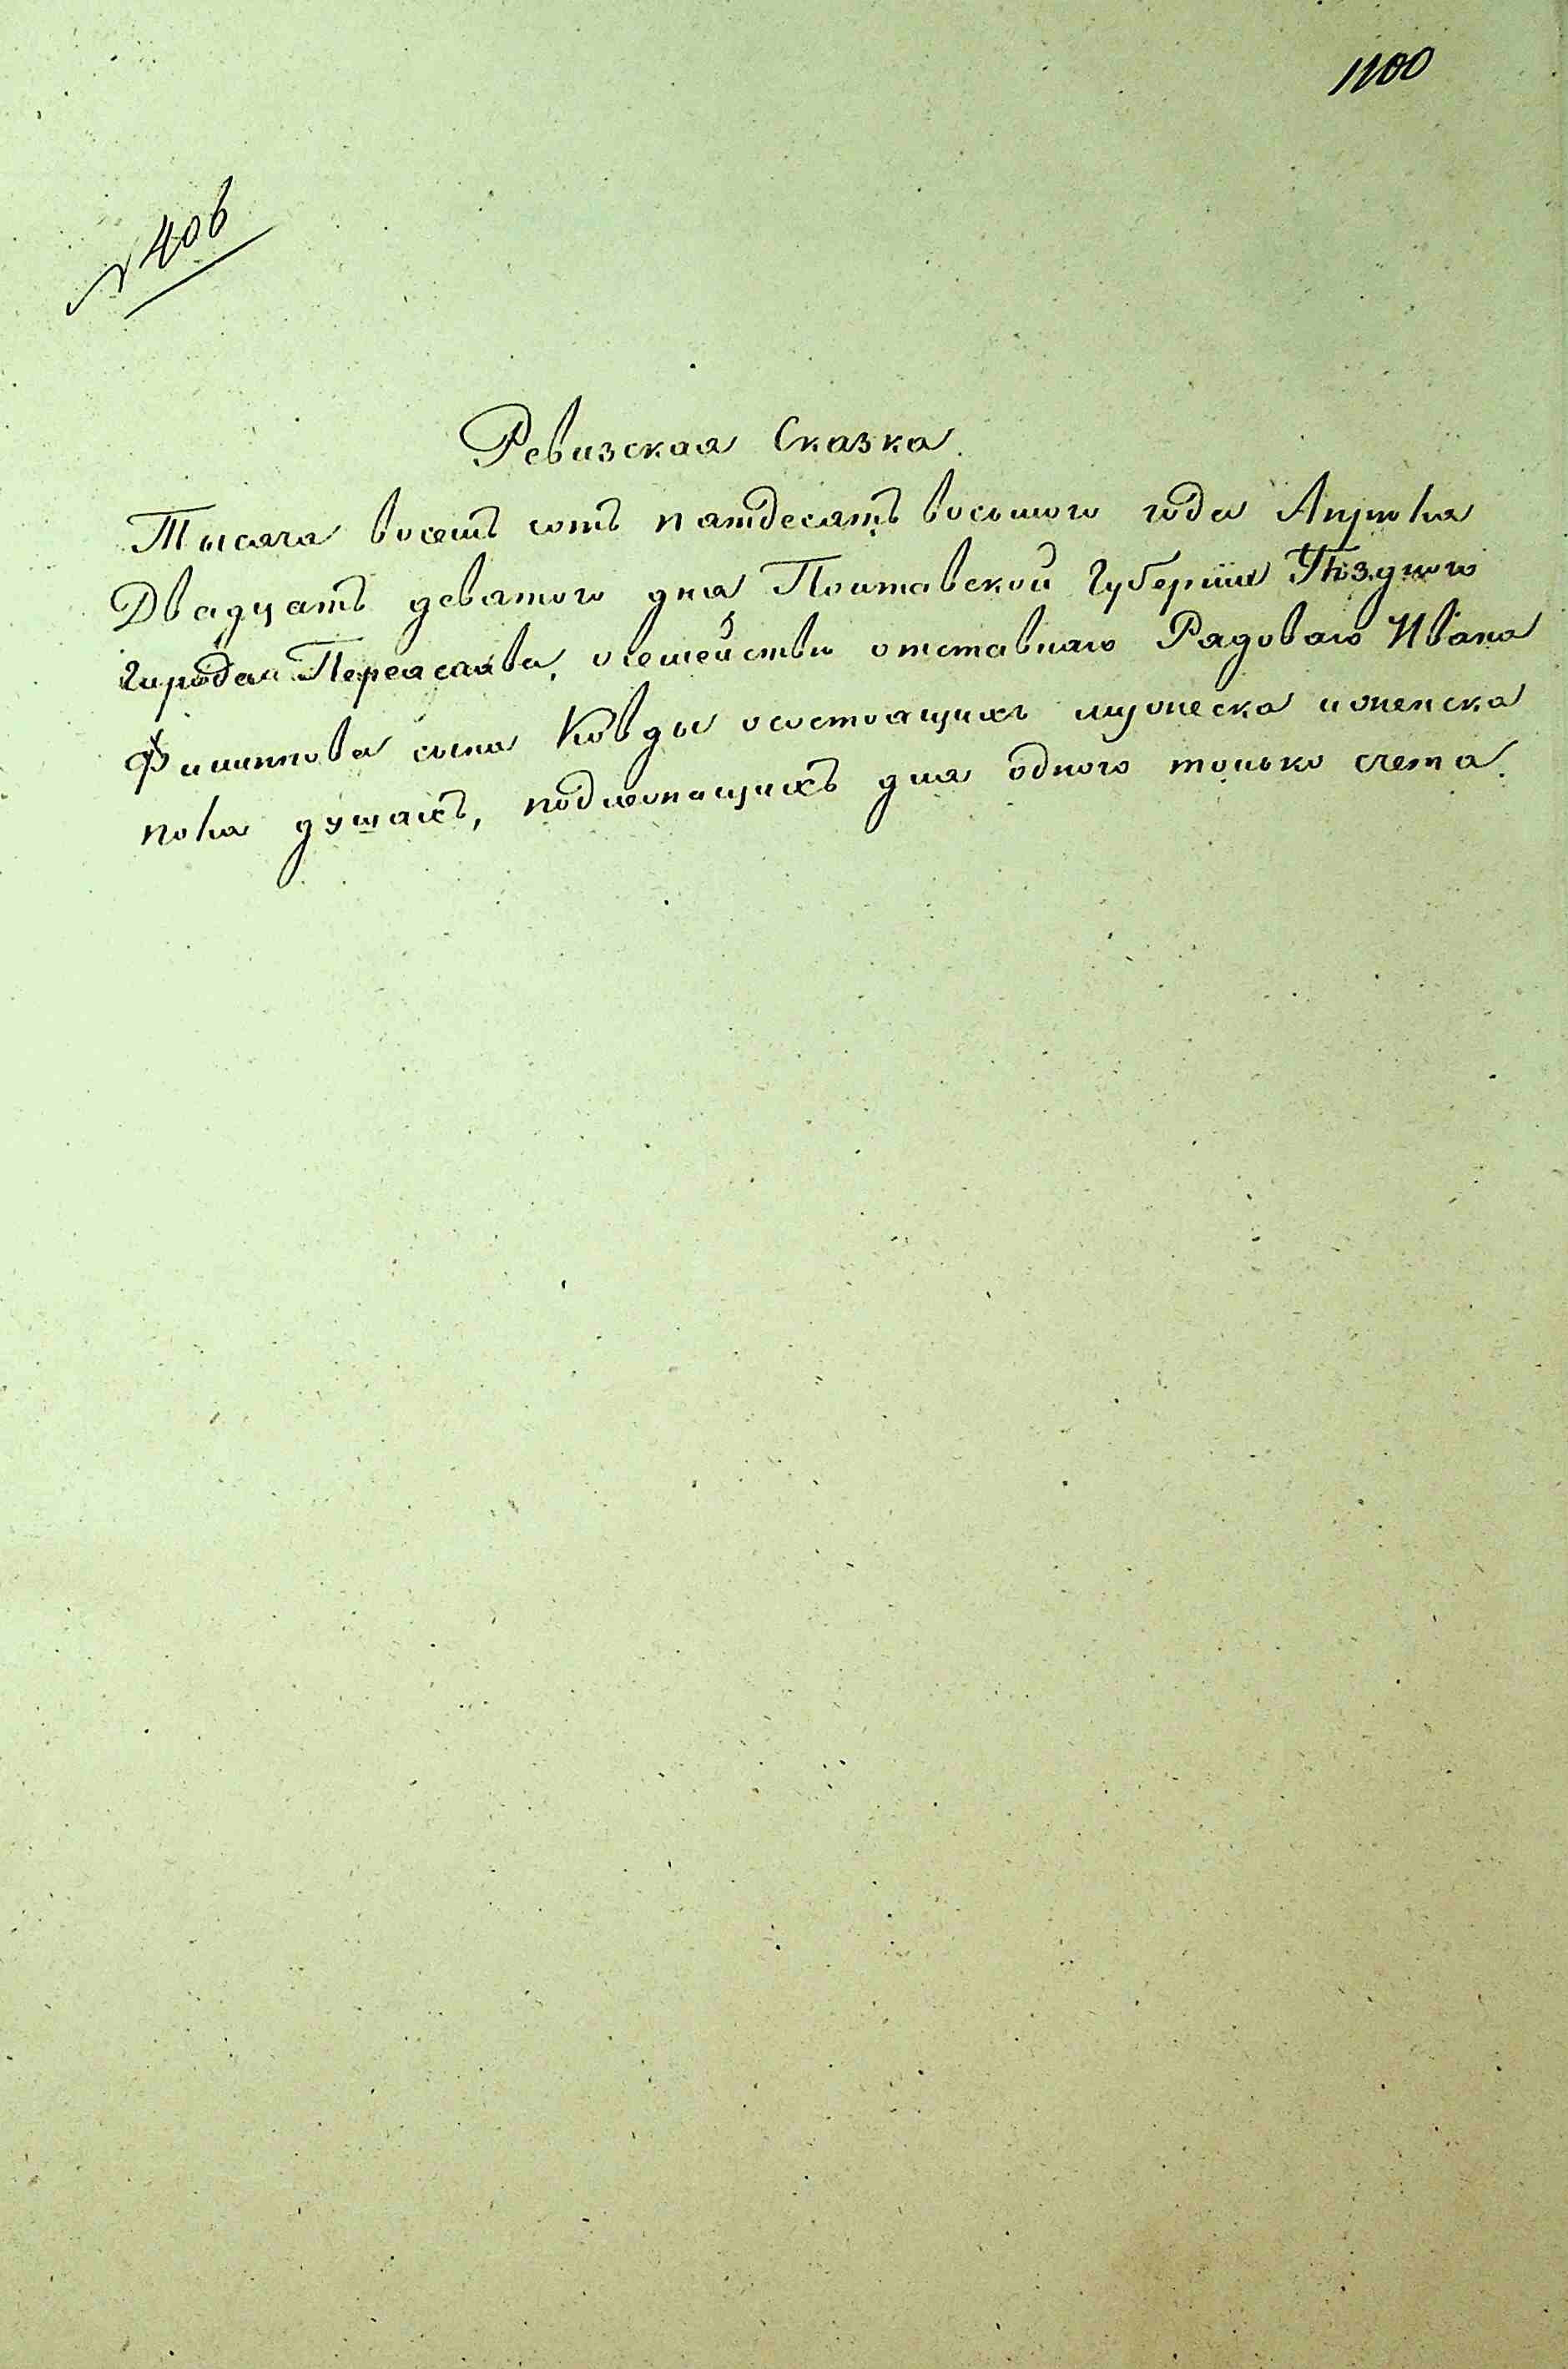 1100
№ 406
Ревизская Сказка.
Тысяча восемъ сотъ пятдесятъ восьмого года Апреля
Двадцать девятого дня Полтавской Губерніи Уѣздного
города Переяслава, осемействѣ отставнаго Рядоваго Ивана
Филиппова сына Ковды осостоящихъ мужеска иженска
пола душахъ, подлежащихъ для одного только счета.